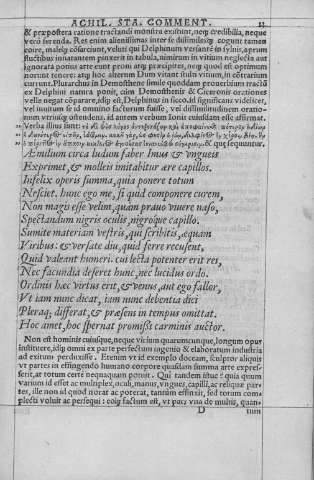 ACHIL. STA. COMMENT.
& præpostera ratione tractandi monstra existunt, neq; credibilia, neque
verò ferenda. Res enim alienissimas inter se dissimilesq; cogunt tamen
coire, malelq; cōsarciunt, veluti qui Delphinum versantē in syluis, aprum
fluctibus inuitantem pinxerit in tabula, nimirum in vitium neglecta aut
ignorata potius arte eunt proni atq; præcipites, neq; quod est optimum
norunt tenere: atq; hoc alterum Dum vitant stulti vitium, in cōtrarium
currunt. Plutarchus in Demosthene simile quoddam prouerbium tractū
ex Delphini natura ponit, cùm Demosthenis & Ciceronis orationes
velle negat cōparare, idq; est, Delphinus in sicco. id significauit videlicet,
vel maximum se id omnino facturum fuisse, vel dissimilitudinem oratio-
num vtriusq; ostendens. id autem verbum Ionis cuiusdam esse affirmat.
Verba illius sunt:
& quæ sequuntur.
Æmilium circa ludum faber Imus & vngueis
Exprimet, & molleis imitabitur ære capillos.
Infelix operis summa, quia ponere totum
Nesciet. hunc ego me, si quid componere curem,
Non magis esse velim, quàm prauo viuere naso,
Spectandum nigris oculis, nigroq́ue capillo.
Sumite materiam vestris, qui scribitis, æquam
Viribus: & versate diu, quid ferre recusent,
Quid valeant humeri. cui lecta potenter erit res,
Nec facundia deseret hunc, nec lucidus ordo.
Ordinis hæc virtus erit, & venus, aut ego fallor,
Vt iam nunc dicat, iam nunc debentia dici
Pleraq; differat, & præsens in tempus omittat.
Hoc amet, hoc spernat promissi carminis auctor.
Non est hominis cuiusque, neque vicium quarumcunque, longum opus
instituere, idq; omni ex parte perfectum ingenio & elaboratum industria
ad exitum perduxisse. Etenim vt id exemplo doceam, sculptor aliquis
vt partes in effingendo humano corpore quasdam summa arte expres-
serit, at totum certè nequaquam potuit. Qui tandem istuc? quia quum
varium id esset ac multiplex, oculi, manus, vngues, capilli, ac reliquæ par-
tes, ille non id quod norat ac poterat, tantùm effinxit, sed totum com-
plecti voluit ac persequi: eoiq; factum est, vt pars vna de multis, quan-
D
tum